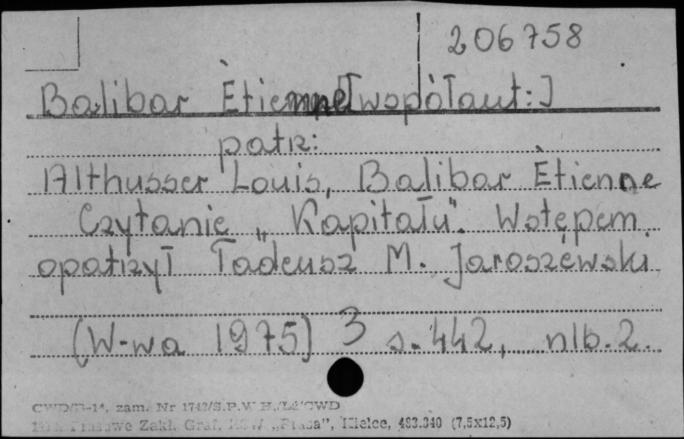 206758
Balibar Ètienne [wspòłaut:]
patrz:
Althusser Louis, Balibar Ètienne
Czytanie „Kapitału". Wstępem
opatrzył Tadeusz M. Jaroszewski
(W-wa 1975) 3 s. 442, nlb. 2.
zam. Nr 1742/S.P.W
Zakł. Graf. „Prasa", Kielce, 483.340 (7,5x12,5)